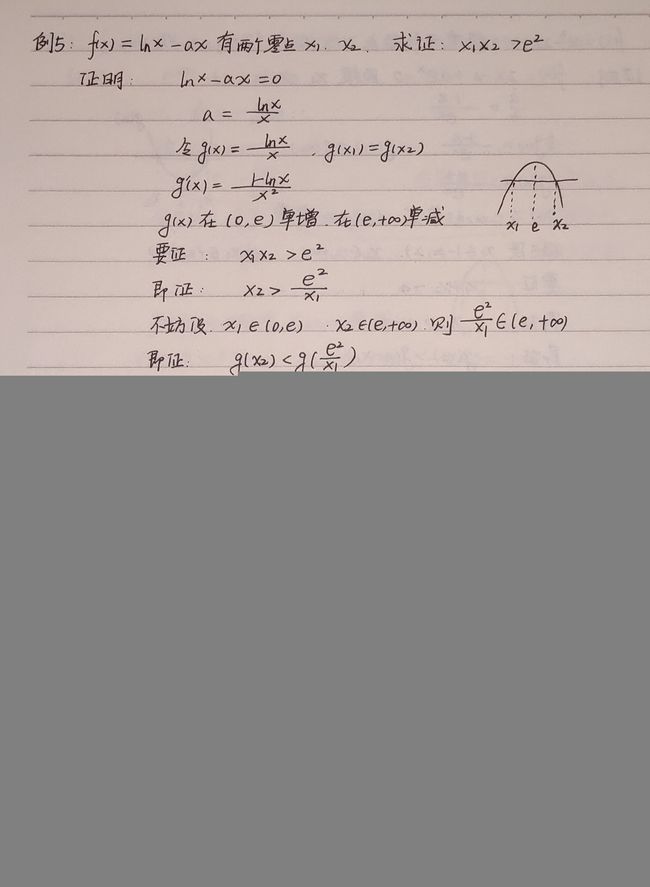 例5: f(x) = lnx - ax 有两个零点 x₁. x₂. 求证: x₁x₂ > e²
证明: lnx - ax = 0
a = lnx/x
令 g(x) = lnx/x . g(x₁) = g(x₂)
g'(x) = 1-lnx/x²
g(x) 在 (0,e) 单增. 在(e,+∞)单减
x₁ e x₂
要证: x₁x₂ > e²
即证: x₂ > e²/x₁
不妨设. x₁∈(0,e) . x₂∈(e,+∞). 则 e²/x₁ ∈(e,+∞)
即证: g(x₂) < g(e²/x₁)